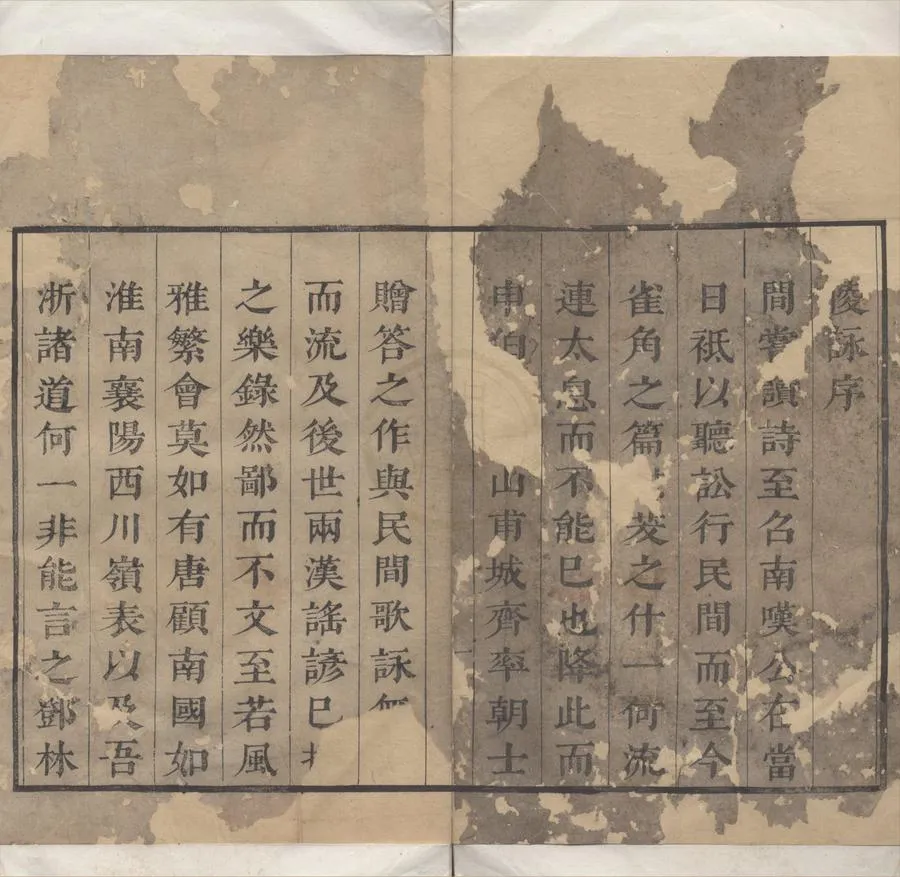 陵詠序
間嘗讀詩至召南嘆公在當
日祗以聽訟行民間而至今
雀角之篇茇之什一何流
連太息而不能已也降此而
申伯山甫城齊率朝士
贈答之作與民間歌詠
而流及後世兩漢謠諺已
之樂錄然鄙而不文至若風
雅繁會莫如有唐顧南國如
淮南襄陽西川嶺表以及吾
浙諸道何一非能言之鄧林